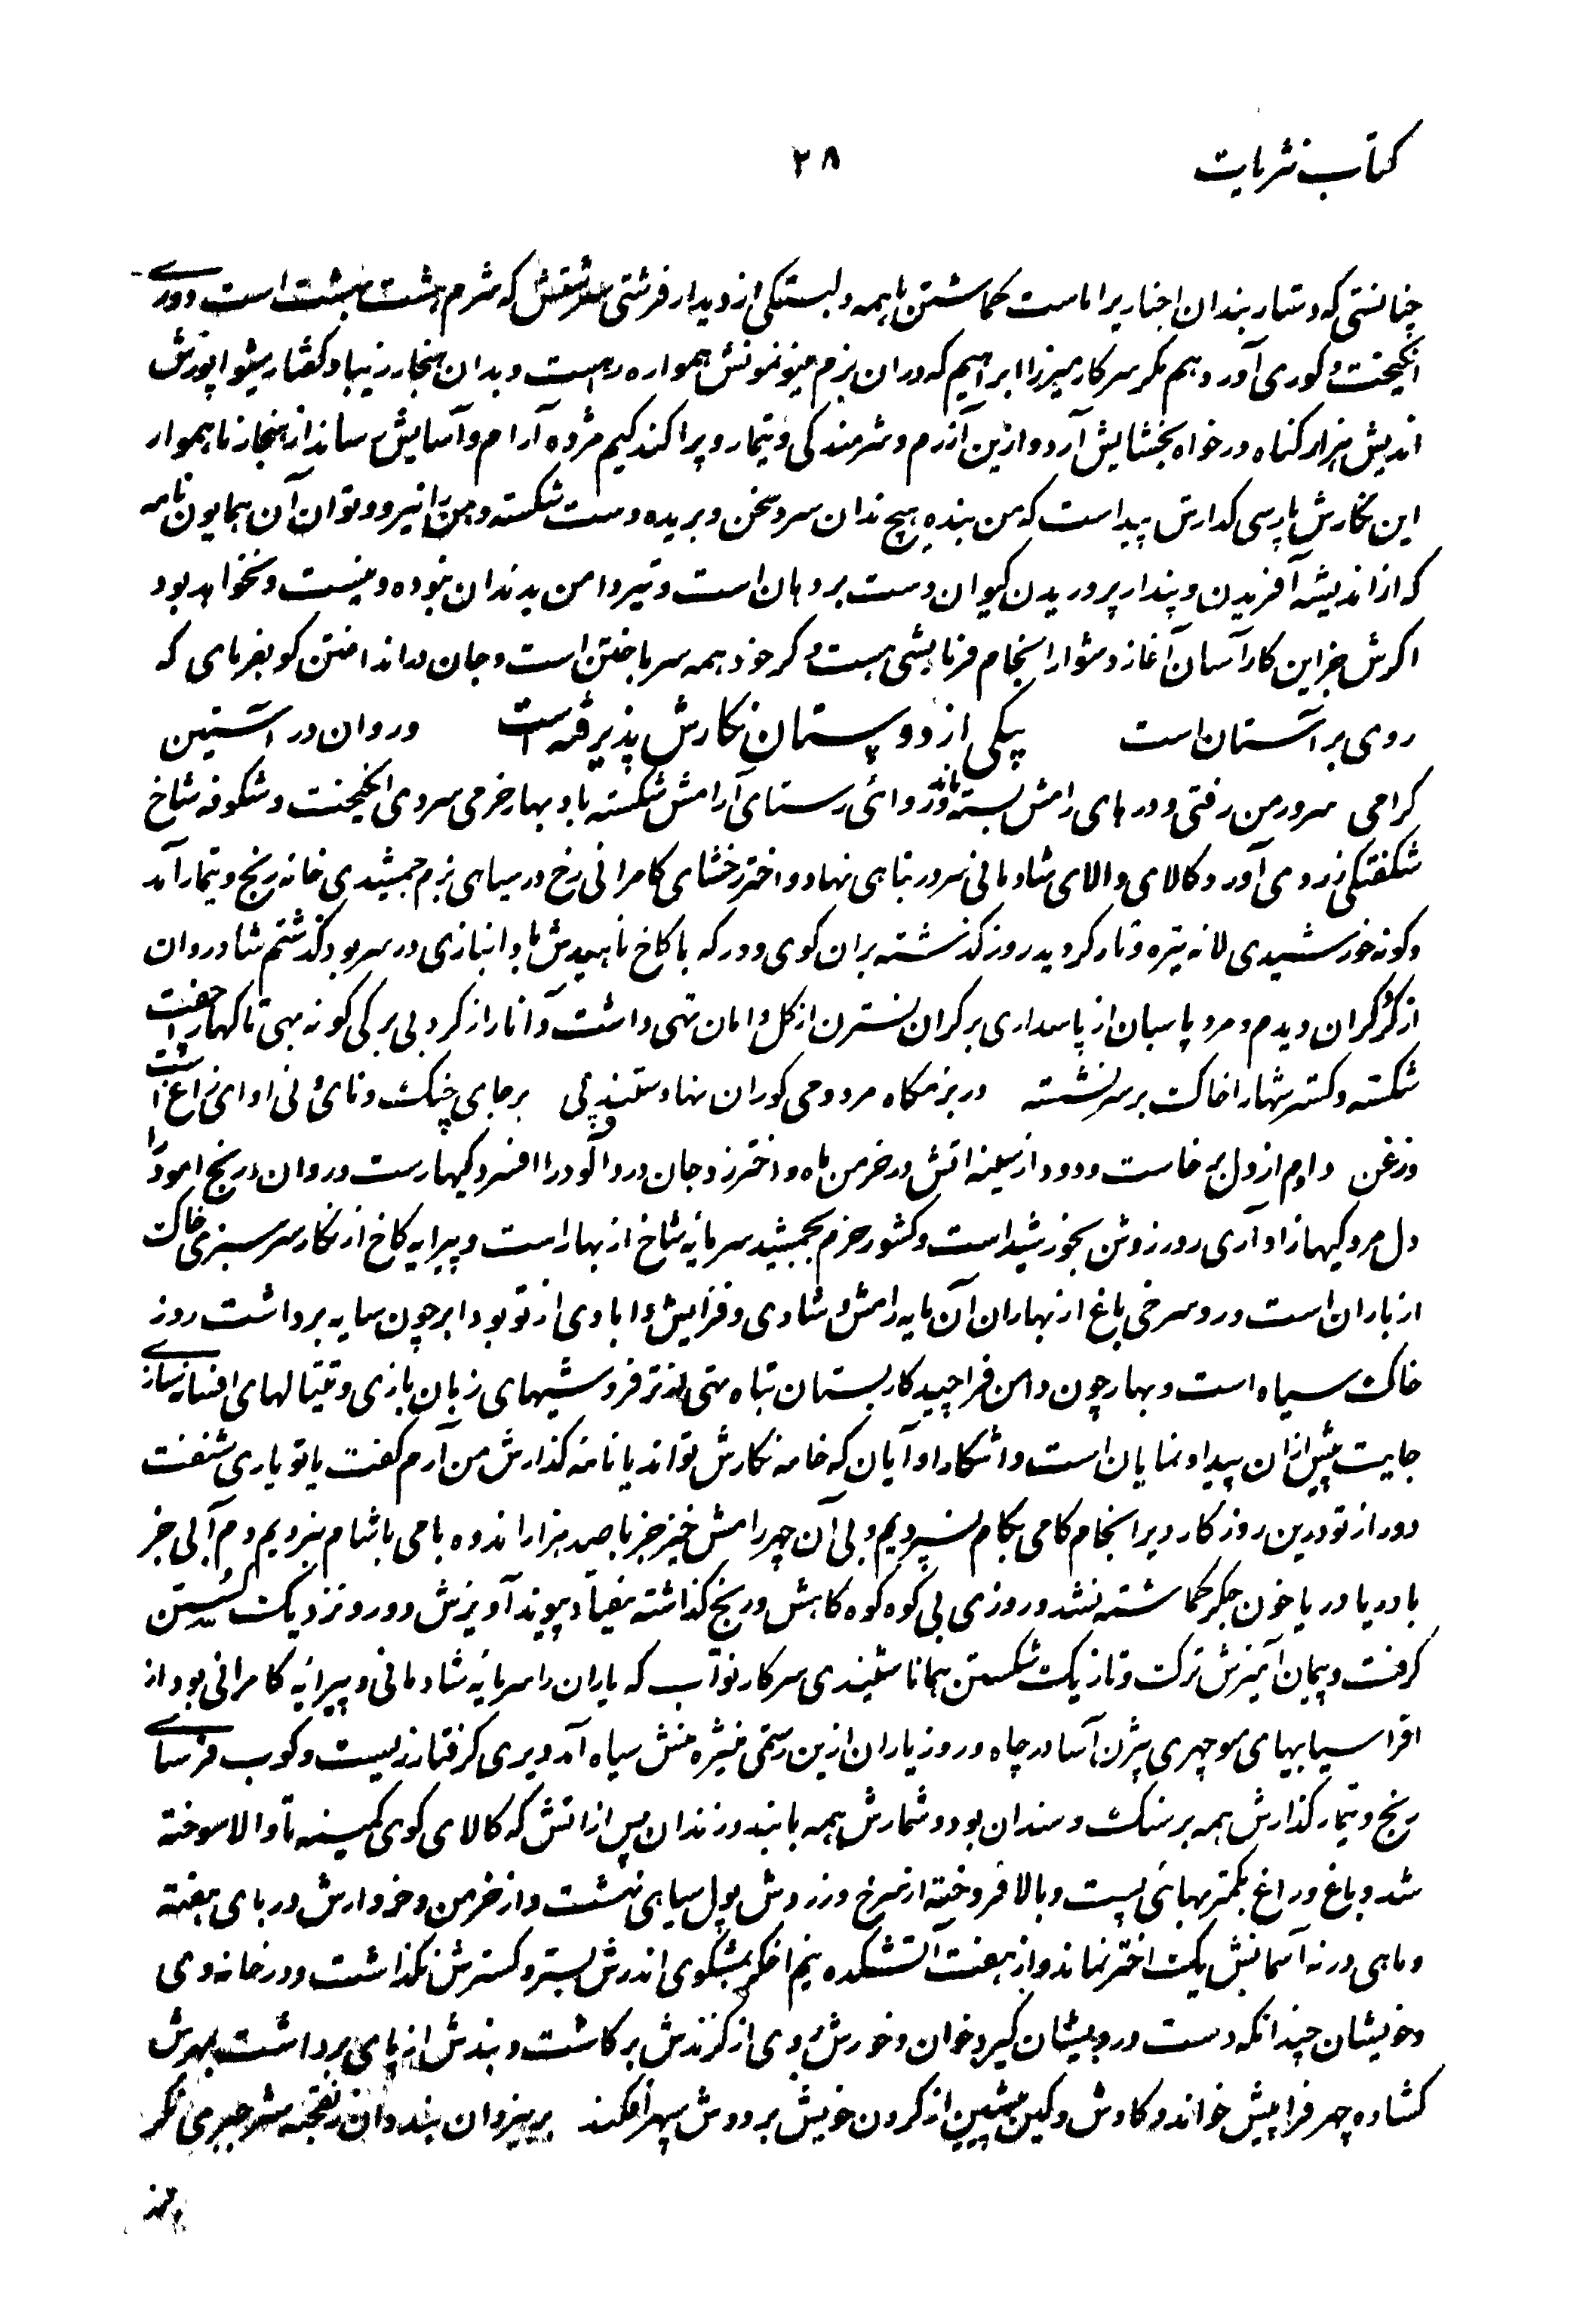 کتاب نثریات
۲۸
چنانستی که دستار بندان اجنار برا ماست کماشتن با همه دلبستگی از دیدار فرشتی سرشتش که شرم هشت بهشت است دوری
انکیخت و کوری آورد هم مکر سرکار میرزا ابراهیم که در ان بزم مینو نمونش همواره ره است و بدان هنجار زیبا و کفتار شیوا پوزش
اندیش هزار کناه در خواه بخشایش آرد و ازین آزرم و شرمندکی و تیمار و پراکندکیم مژده آرام و آسایش رساند از هنجار ناهموار
این نکارش پارسی کدارش پیداست که من بنده هیچ ندان سرد سخن و بریده دست شکسته دهن را نیرو و توان آن همایون نامه
که از اندیشه آفریدن و پندار پروریدن کیوان دست بر دهان است و تیر دامن بدندان نبوده و نیست و نخواهد بود
اکرش جز این کار آسان آغاز دشوار انجام فرمایشی هست و کر خود همه سر باختن است و جان در انداختن کو بفرمای که
روی بر آستان است روان در آستین
پیکی از دوستان نکارش پذیرفته است
کرامی سرور من رفتی و درهای رامش بسته ماند و روائی رستای آرامش شکسته باد بهار خرمی سردی انکیخت و شکوفه شاخ
شکفتکی زردی آورد و کالای والای شادمانی سر در تباهی نهاد و اختر رخشای کامرانی رخ در سیاهی بزم جمشیدی خانه رنج و تیمار آمد
و کونه خورشیدی لانه تیره و تار کردید روز کذشته بران کوی و در که با کاخ ناهیدش باد انبازی در سر بود کذشتم شادروان
از کژ کران دیدم و مرد پاسبان از پاسداری بر کران نسترن از کل دامان تهی داشت و آنار از کرد بی برکی کونه بهی تاکها را جفت
شکسته و کسترشها را خاک بر سر نشسته در بزمکاه مردومی کوران نهادستند پی بر جای چنک و نای و نی اوای زاغ است
و زغن دادم از دل برخاست و دود از سینه اتش در خرمن ماه و اختر زد جان درد آلود را افسرد کیهارست و روان رنج امود را
دل مردکیها زاد آری روز روشن بخورشید است و کشور خرم بجمشید سرمایه شاخ از بهار است و پیرایه کاخ از نکار سرسبزی خاک
از باران است و روسرخی باغ از بهاران آن مایه رامش و شادی و فزایش و ابادی از تو بود ابر چون سایه برداشت روز
خاک سیاه است و بهار چون دامن فراچید کار بستان تباه تهی از تر فروشیهای زبان بازی و تیتالهای افسانه سازی
جایت بیش از ان پیدا و نمایان است و اشکارا و آیان که خامه نکارش تواند یا نامه کذارش من آرم کفت یا تو یاری شنفت
دور از تو درین روزکار دیر انجام کامی بکام نسپردیم و بی آن چهر رامش خیز جز با صد هزار اندوه بامی با شام نبردیم دم آبی جز
با دریا دریا خون جکر کماشته نشد و روزی بی کوه کوه کاهش و رنج کذاشته نیفتاد پیوند آویزش دور و نزدیک کسستن
کرفت و پیمان آمیزش ترک و تازیک شکستن همانا شنیدی سرکار نواب که یاران را سرمایه شادمانی و پیرایه کامرانی بود از
افراسیابیهای موچهری بیژن آسا در چاه و روز یاران ازین رستمی منیژه منش سیاه آمد دیری کرفتار زیست و کوب فرسای
رنج و تیمار کذارش همه بر سنک و سندان بود و شمارش همه با بند و زندان پس از انش که کالای کوی کمینه تا والا سوخته
شد و باغ و راغ بکمتر بهائی پست و بالا فروخته از سرخ و زردش پول سیاهی نهشت و از خرمن و خروارش در بای هفته
و ماهی در نه آسمانش یک اختر نماند و از هفت آتشکده نیم اخکر بمشکوی اندرش بستر و کسترش نکذاشت و در خانه وی
و خویشان چندانکه دست درویشان کیرد خوان و خورش روی از کزندش برکاشت و بندش از پای برداشت بمهرش
کشاده چهر فرا پیش خواند و کاوش و کین پیشین از کردن خویش بر دوش سپهر افکند